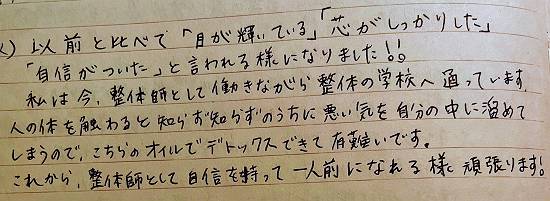 以前と比べて「目が輝いている」「芯がしっかりした」
「自信がついた」と言われる様になりました!!
私は今、整体師として働きながら整体の学校へ通っています。
人の体を触わると知らず知らずのうちに悪い気を自分の中に溜めて
しまうので、こちらのオイルでデトックスできて有難いです。
これから、整体師として自信を持って一人前になれる様に頑張ります!